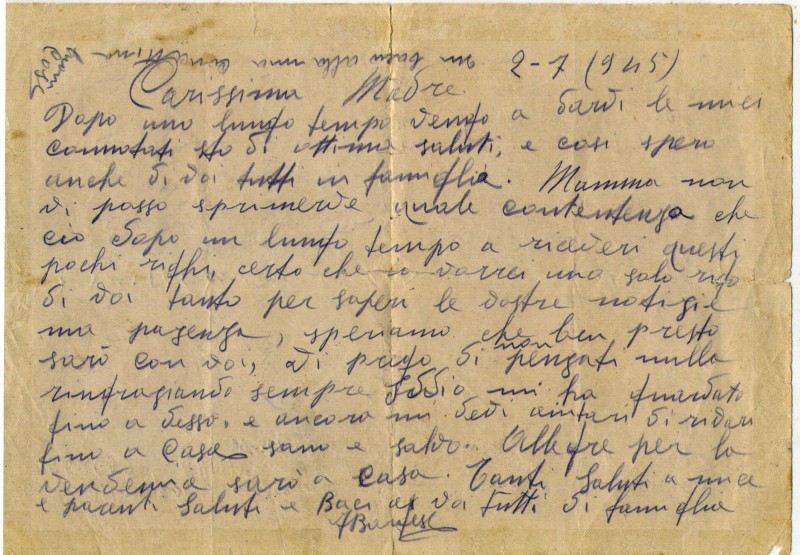 un bacio alla mia cara Nina
2-7 (945)
Carissima Madre
Dopo uno lungo tempo vengo a darvi le miei
connotati sto di ottima saluti, e cosi spero
anche di voi tutti in famiglia. Mamma non
vi posso sprimerve quale contentenza che
ciò dopo un lungo tempo a riceveri questi
pochi righi, certo che io vorrei una solo rigo
di voi tanto per saperi le vostre notizie
ma pazenza, speriamo che ben presto
sarò con voi, vi prego di non penzati nulla
rinfragiando sempre Iddio mi ha guardato
fino a desso. e ancora mi devi aiutari di rivari
fino a Casa sano e salvo. Allegre per la
vendemia sarò a casa. Tanti Saluti a mice
e parenti Saluti e Baci a voi Tutti di famiglia